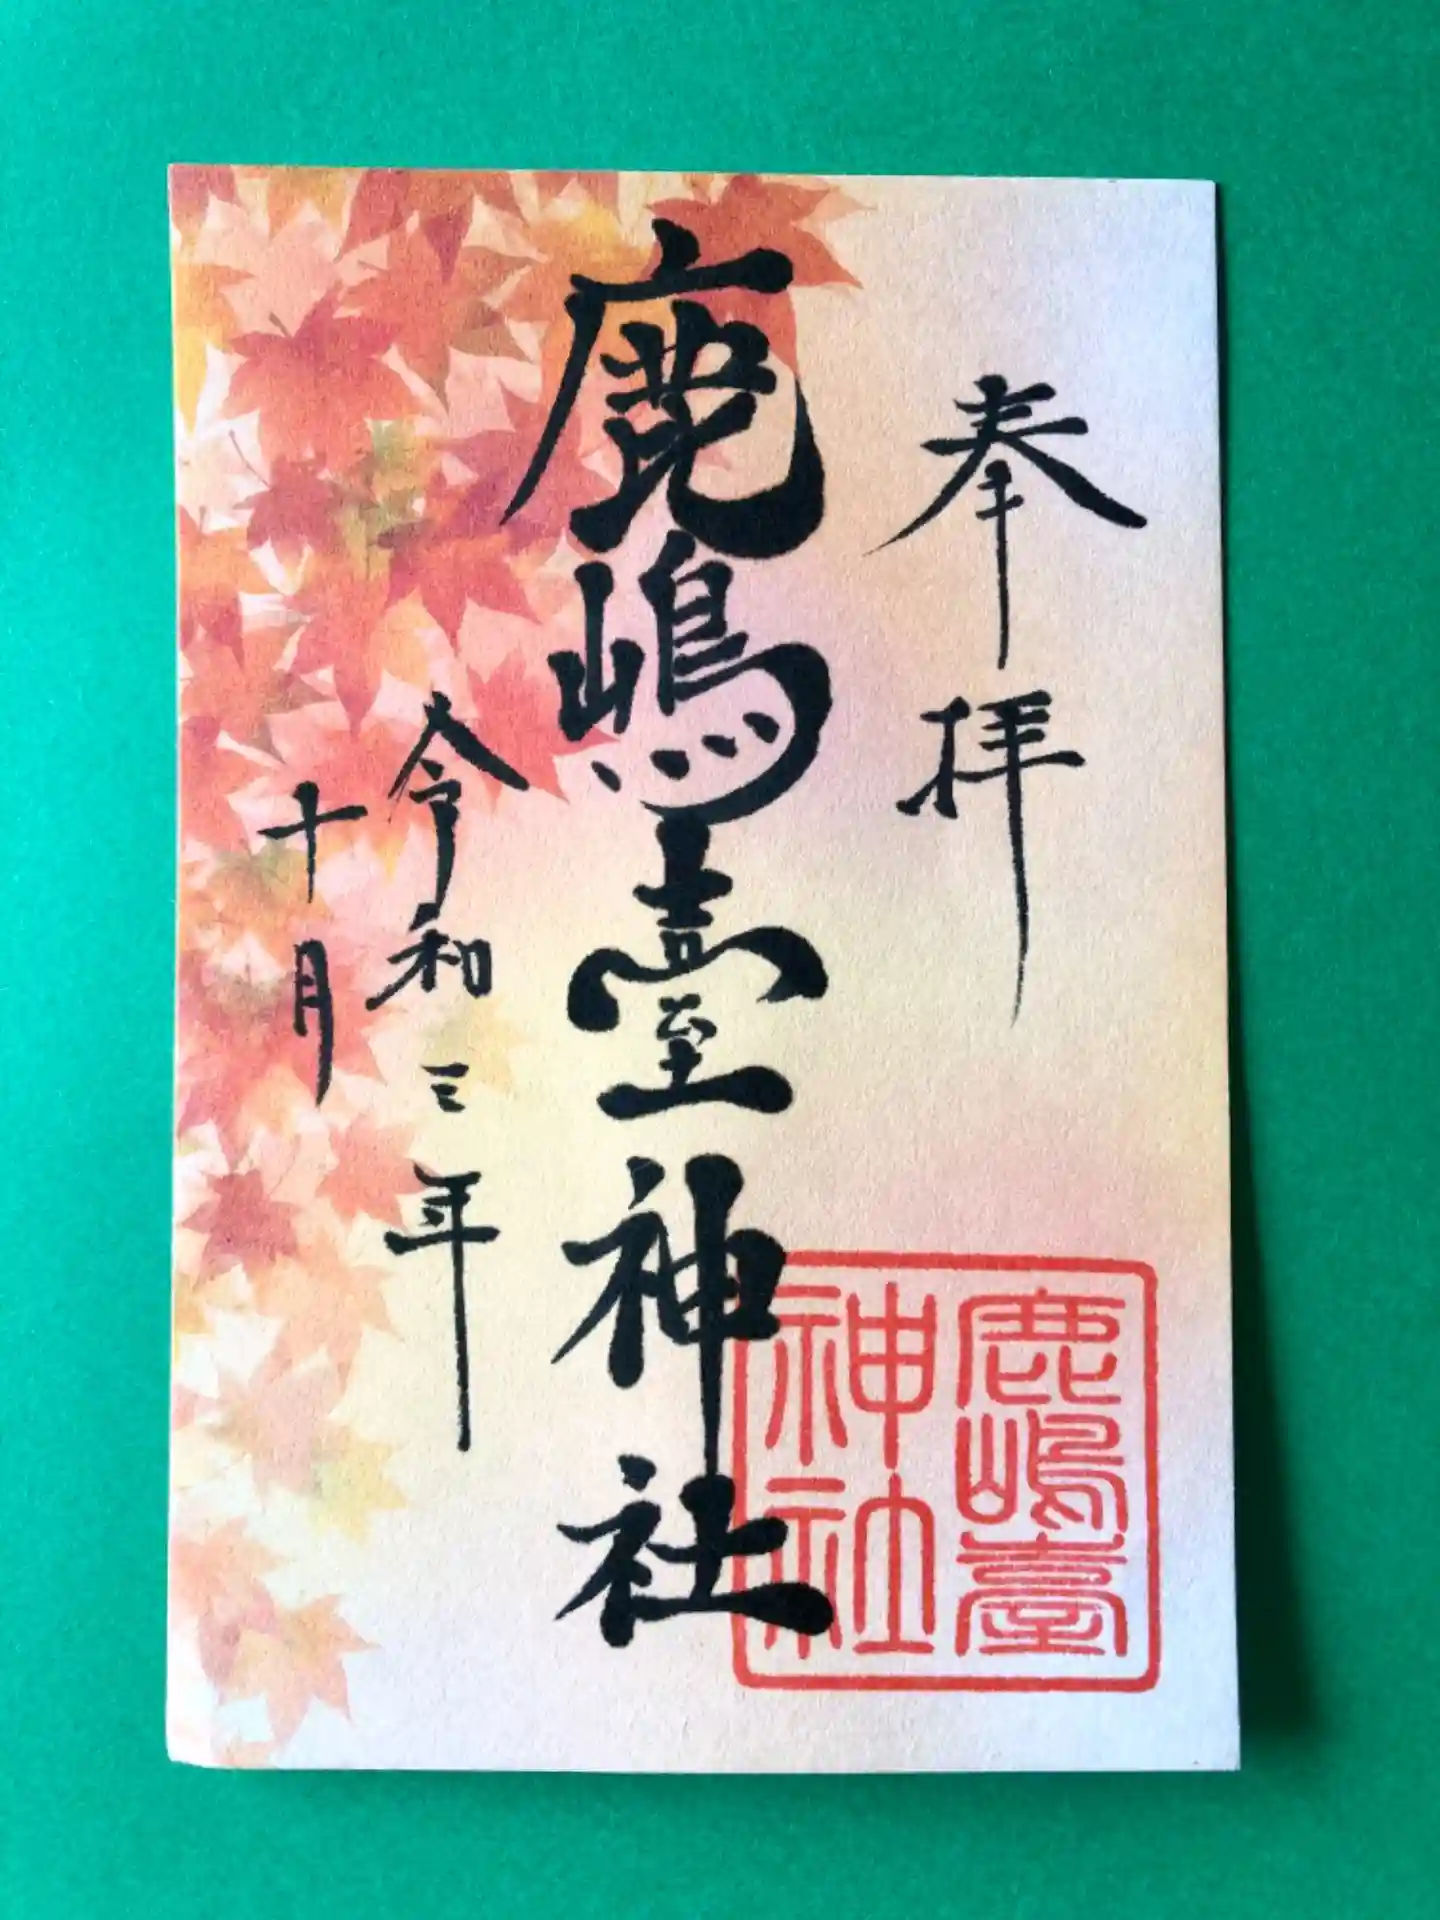 奉拝
鹿嶋臺神社
令和三年
十月
鹿嶋臺
神社